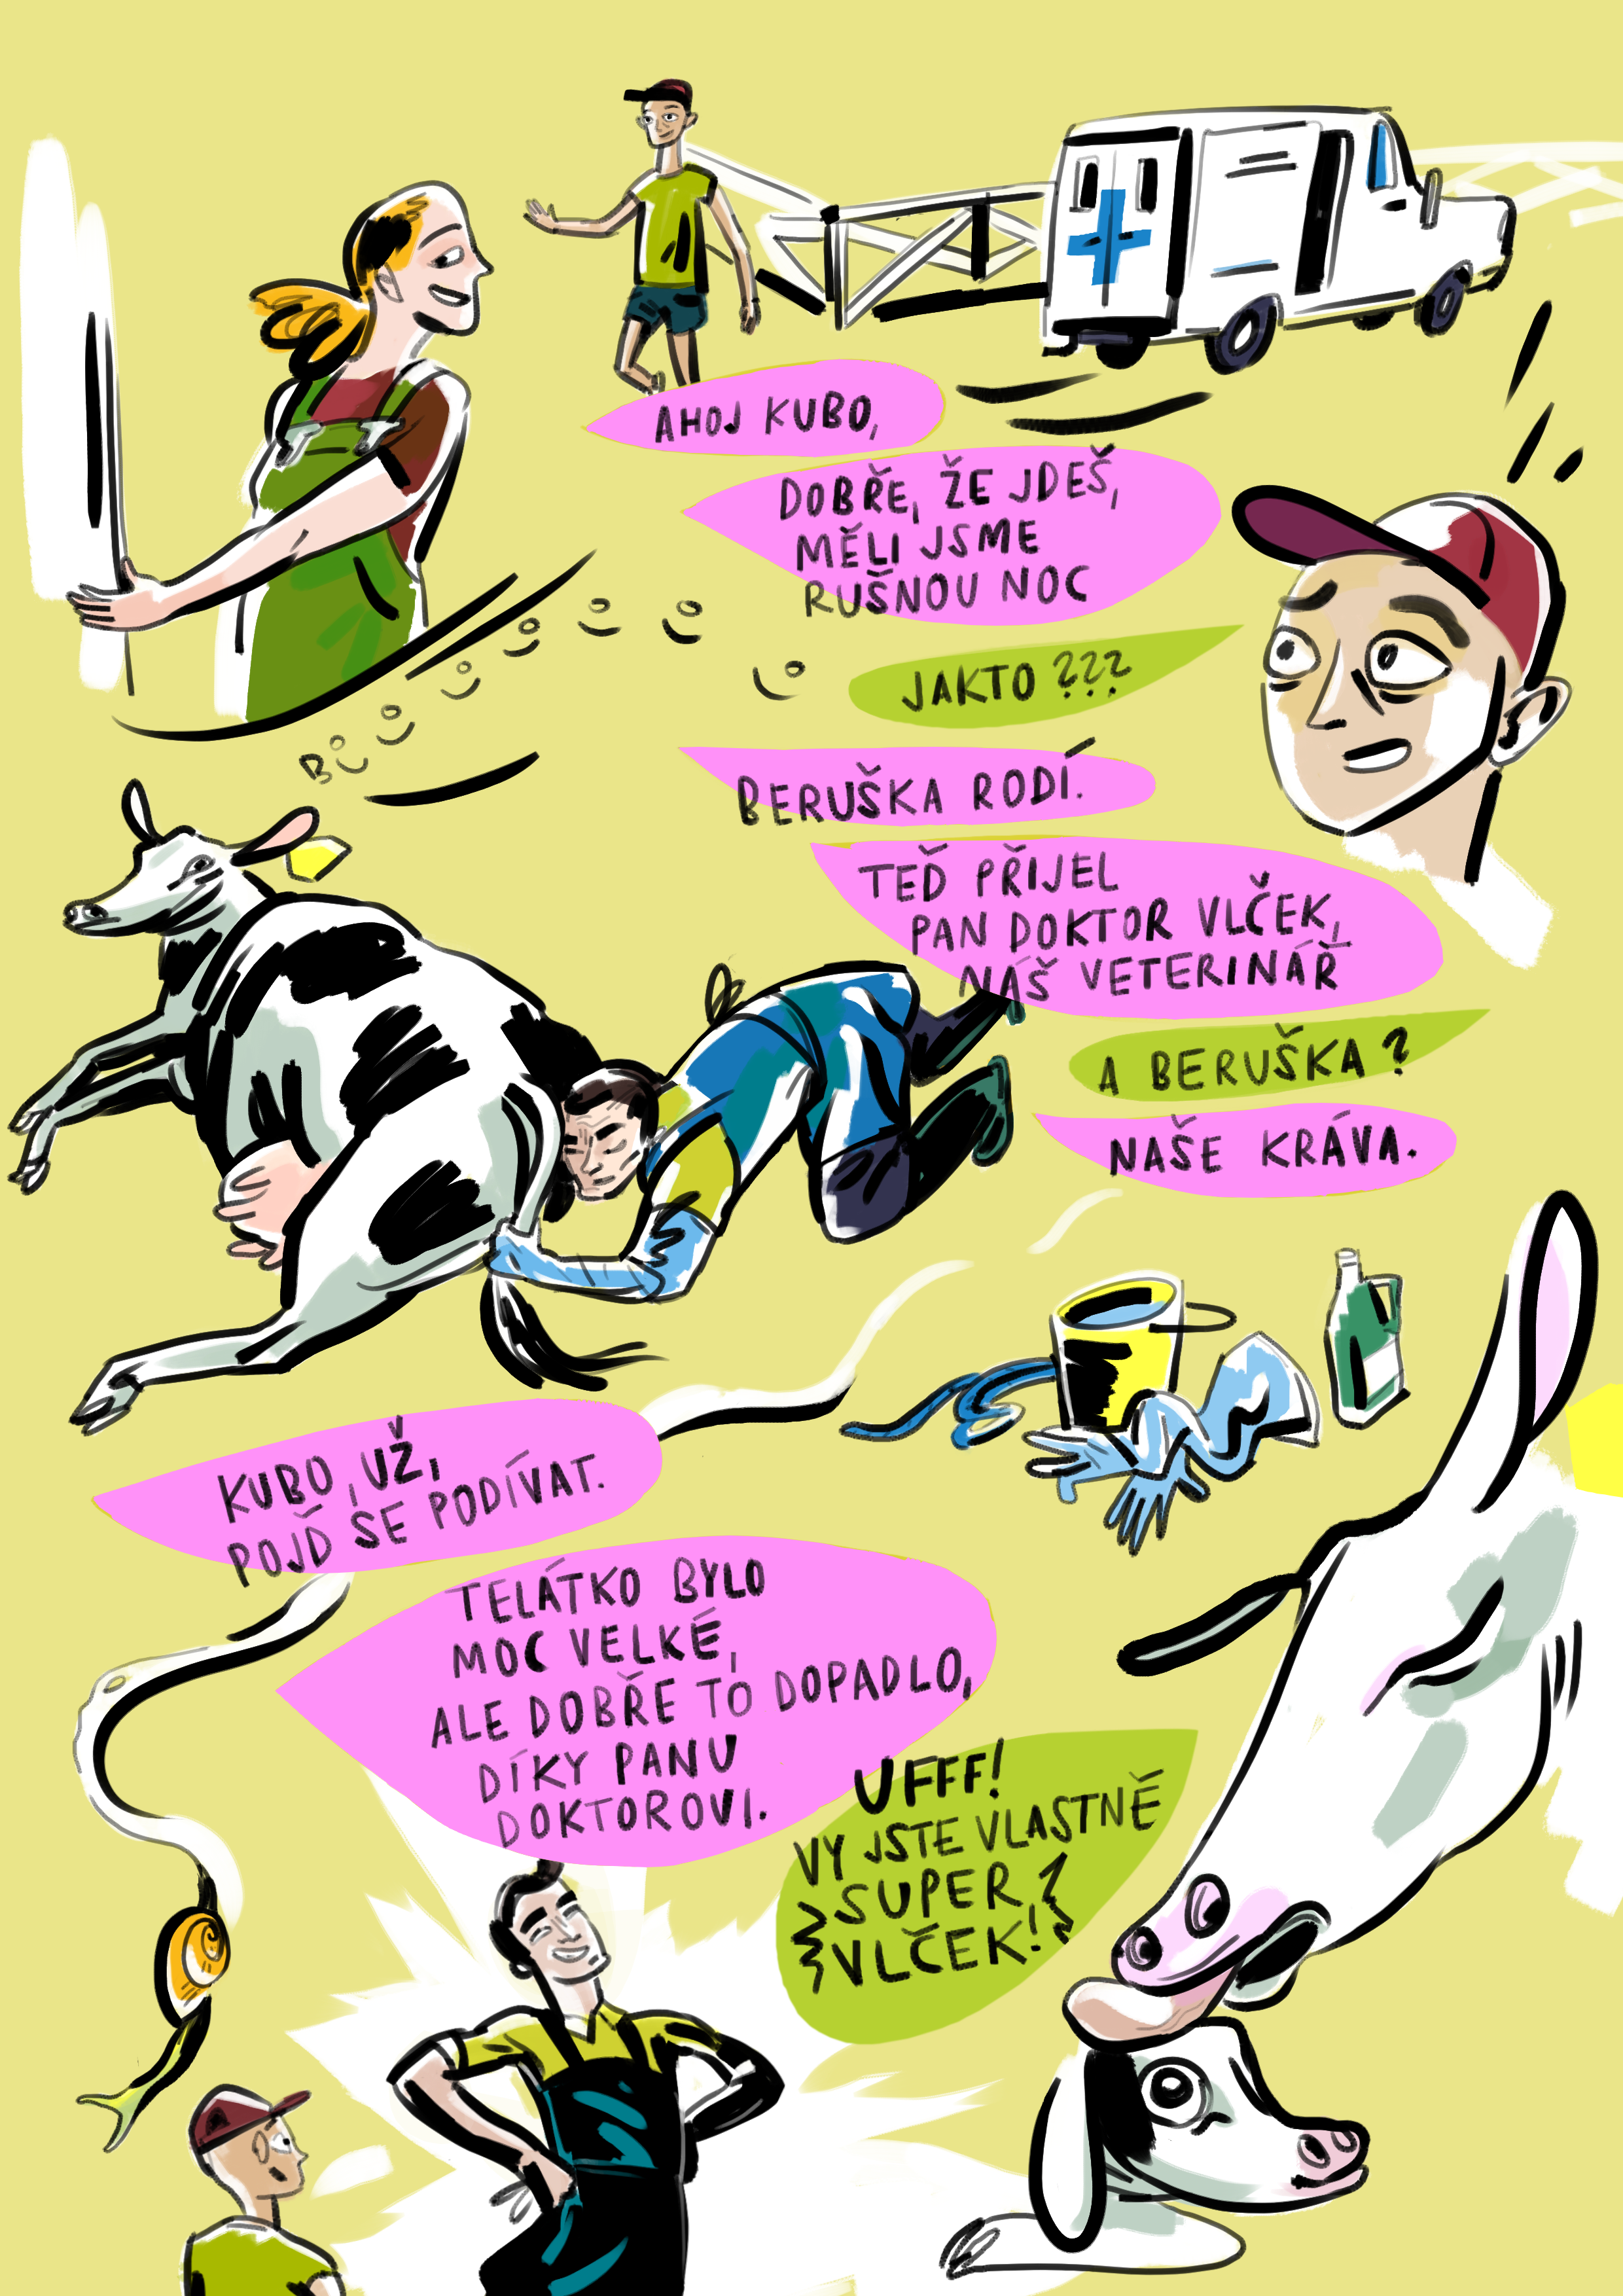 AHOJ KUBO,
DOBŘE, ŽE JDEŠ,
MĚLI JSME
RUŠNOU NOC
JAKTO ???
BŮŮŮŮŮŮŮ
BERUŠKA RODÍ.
TEĎ PŘIJEL
PAN DOKTOR VLČEK,
NÁŠ VETERINÁŘ
A BERUŠKA ?
NAŠE KRÁVA.
KUBO, UŽ,
POJĎ SE PODÍVAT.
TELÁTKO BYLO
MOC VELKÉ,
ALE DOBŘE TO DOPADLO,
DÍKY PANU
DOKTOROVI.
UFFF!
VY JSTE VLASTNĚ
SUPER
VLČEK!